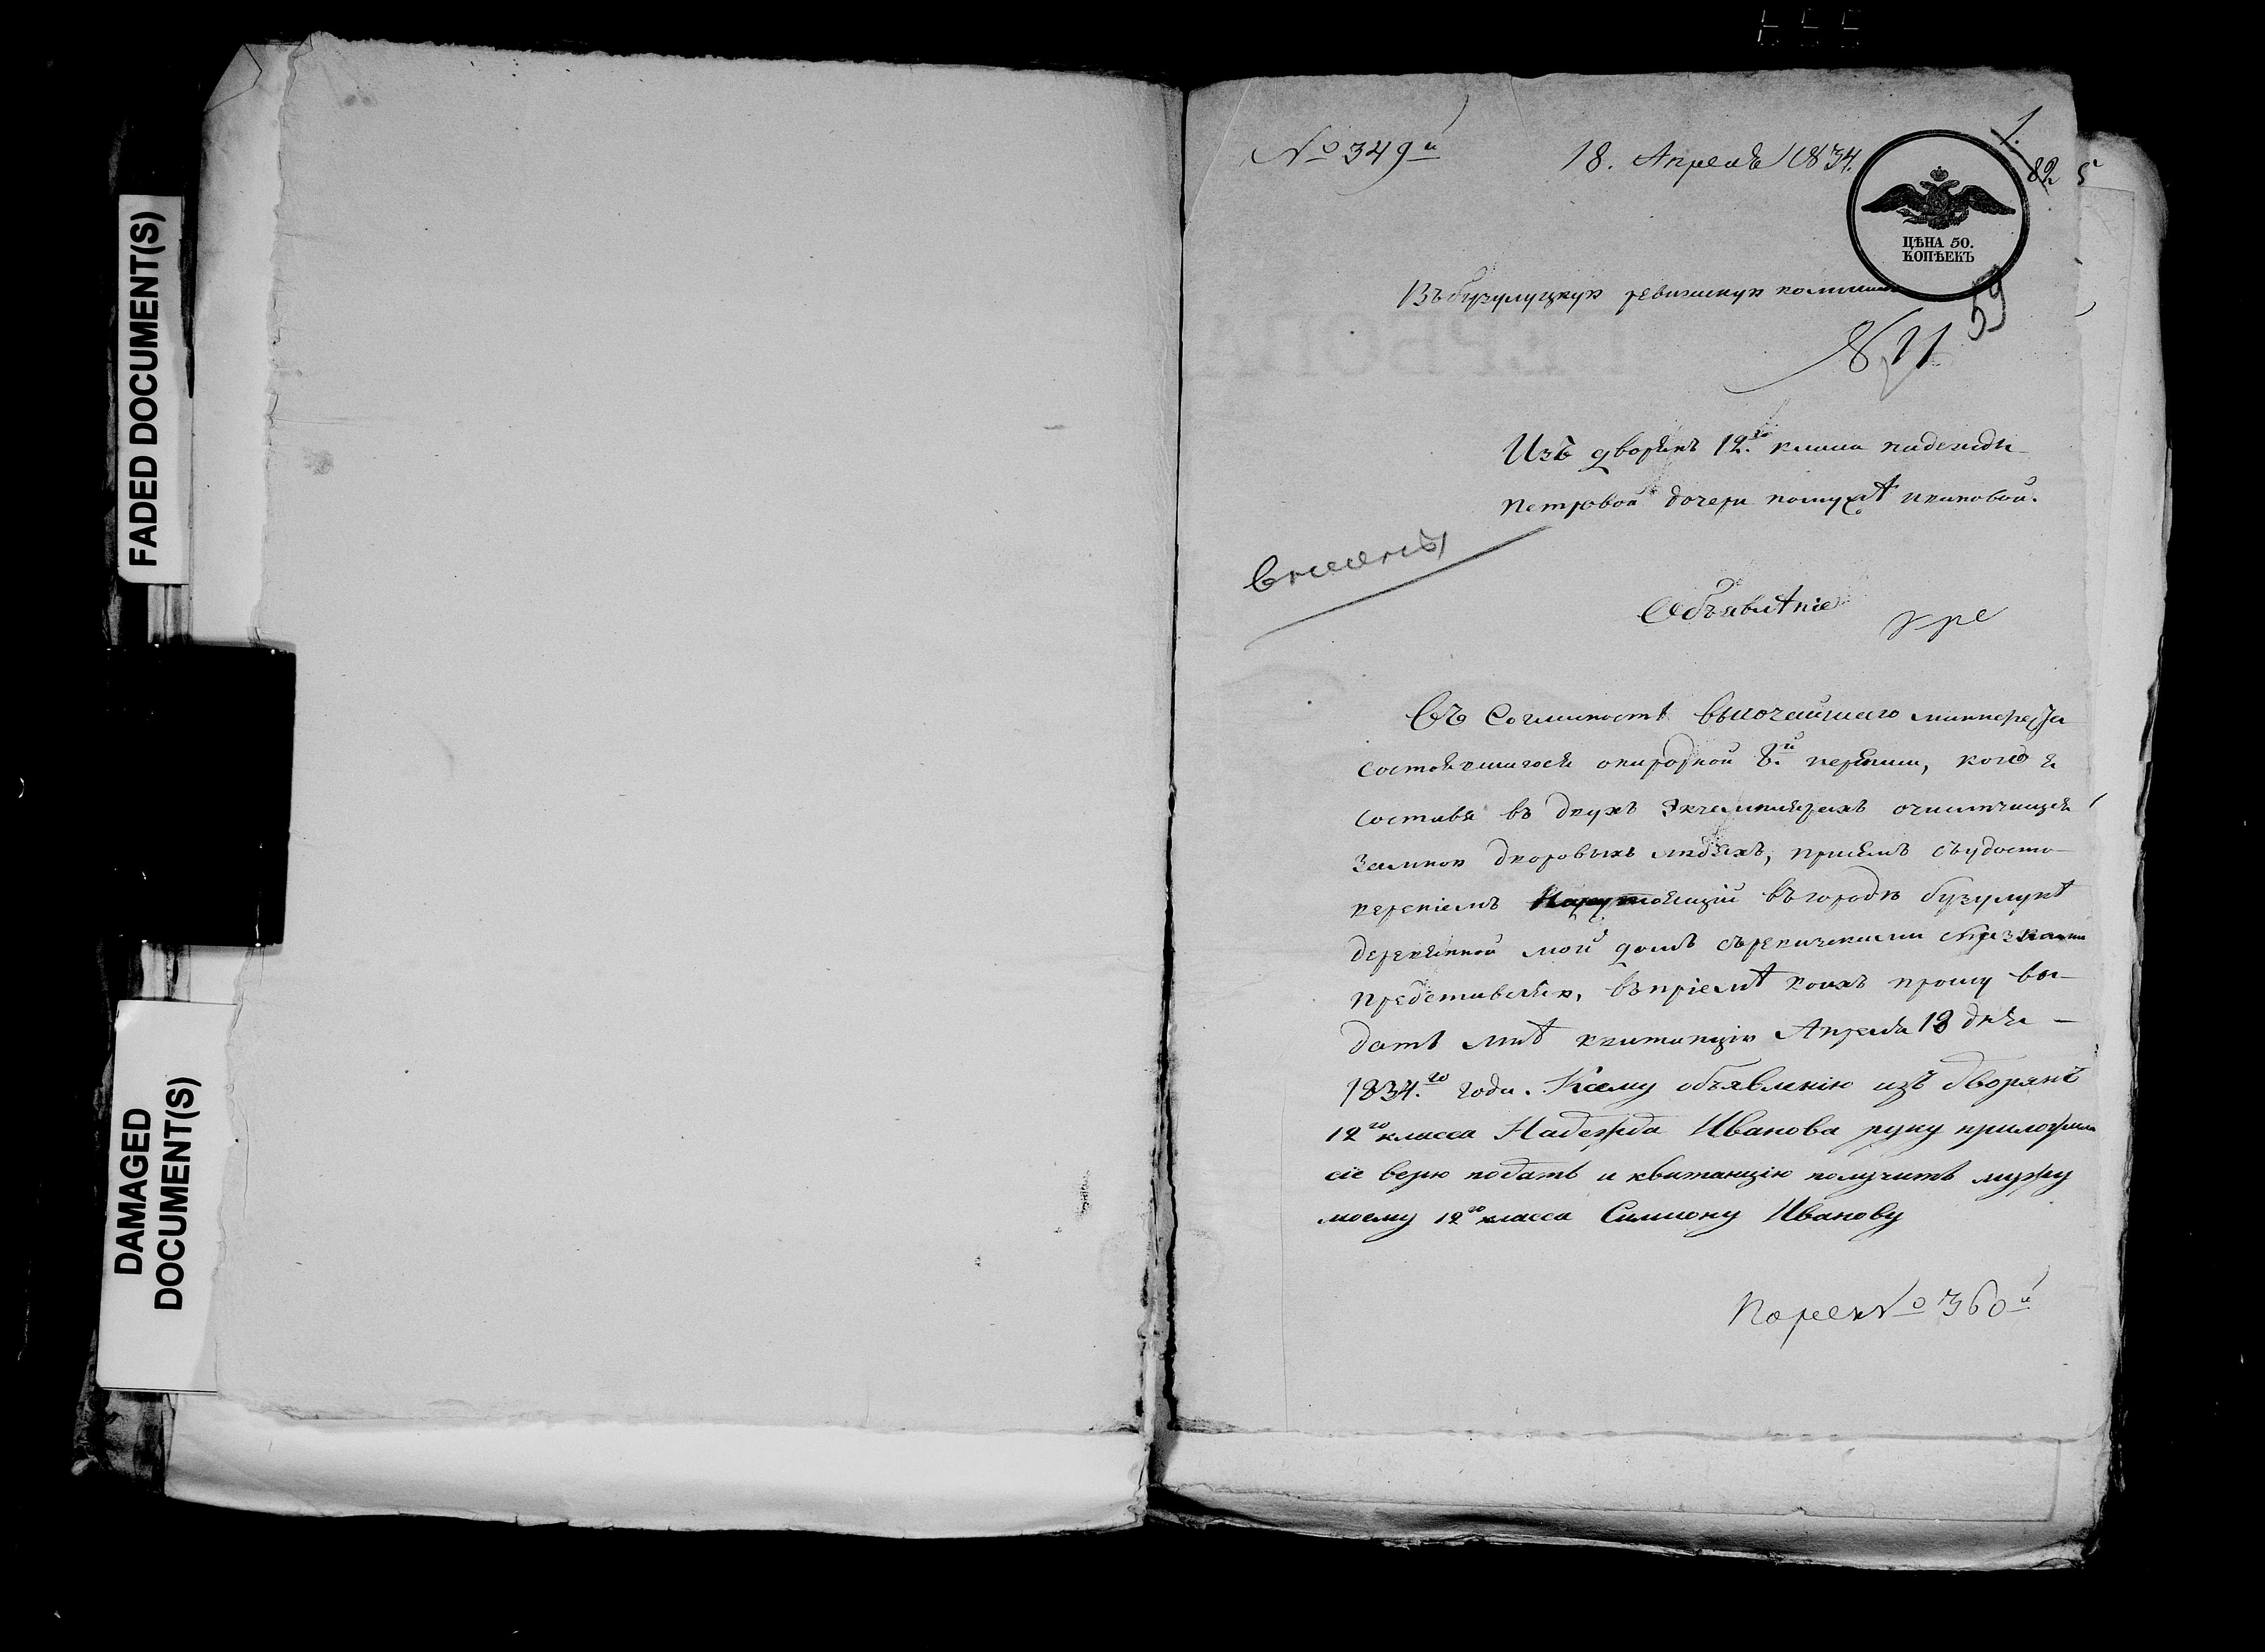 FADED DOCUMENT(S)
DAMAGED
DOCUMENT(S)
№ 349й
18. Апрель 1834.
1.
82
5
ЦѢНА 50.
КОПѢЕКЪ
Въ бузулуцкую ревизскую
59
Изъ дворянъ 12.го класса надежды
петровой дочери по мужѣ ивановой.
внесены
Объявлѣніе
Въ Согласность высочайшаго манифеста
состоявшагося о народной 8.й переписи, кого я
составя въ двухъ Экземплярахъ о числящихся
За мною дворовыхъ людяхъ, приемъ съ удосто-
вереніемъ въ городѣ бузулукѣ
деревянной мой домъ съ ревизскими сказками
представляю, въ пріемѣ коихъ прошу вы-
дать мнѣ квитанцію Апреля 18 дня —
1834.го года. К сему объявленію изъ дворянъ
12го класса Надежда Иванова руку приложила
сіе верю подать и квитанцію получить мужу
моему 12го класса Симиону Иванову
По рее № 360й